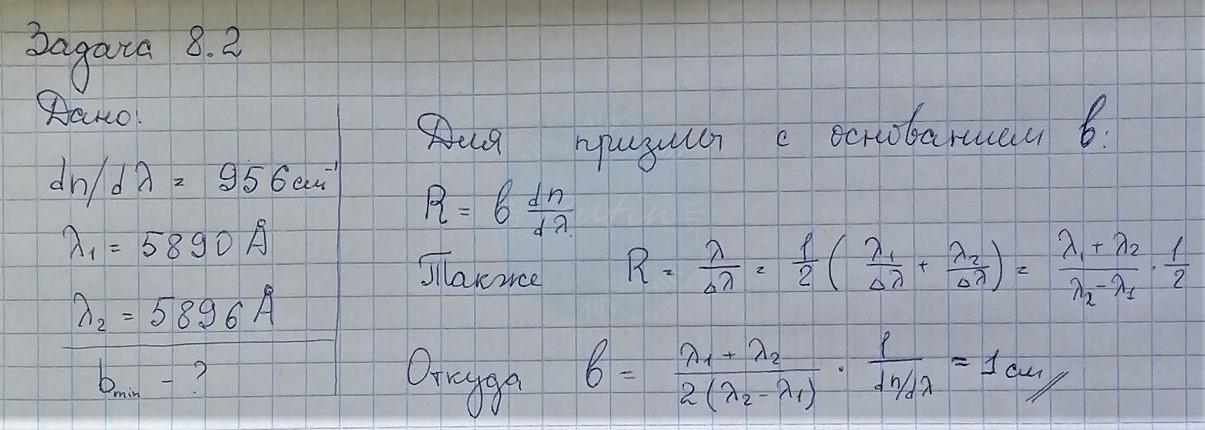 Задача 8.2
Дано:
dn/dλ = 956 см⁻¹
λ₁ = 5890 Å
λ₂ = 5896 Å
b_min - ?
Для призмы с основанием b:
R = b dn/dλ
Также R = λ/Δλ = 1/2 (λ₁/Δλ + λ₂/Δλ) = (λ₁ + λ₂)/(λ₂ - λ₁) · 1/2
Откуда b = (λ₁ + λ₂)/(2(λ₂ - λ₁)) · 1/(dn/dλ) = 1 см //